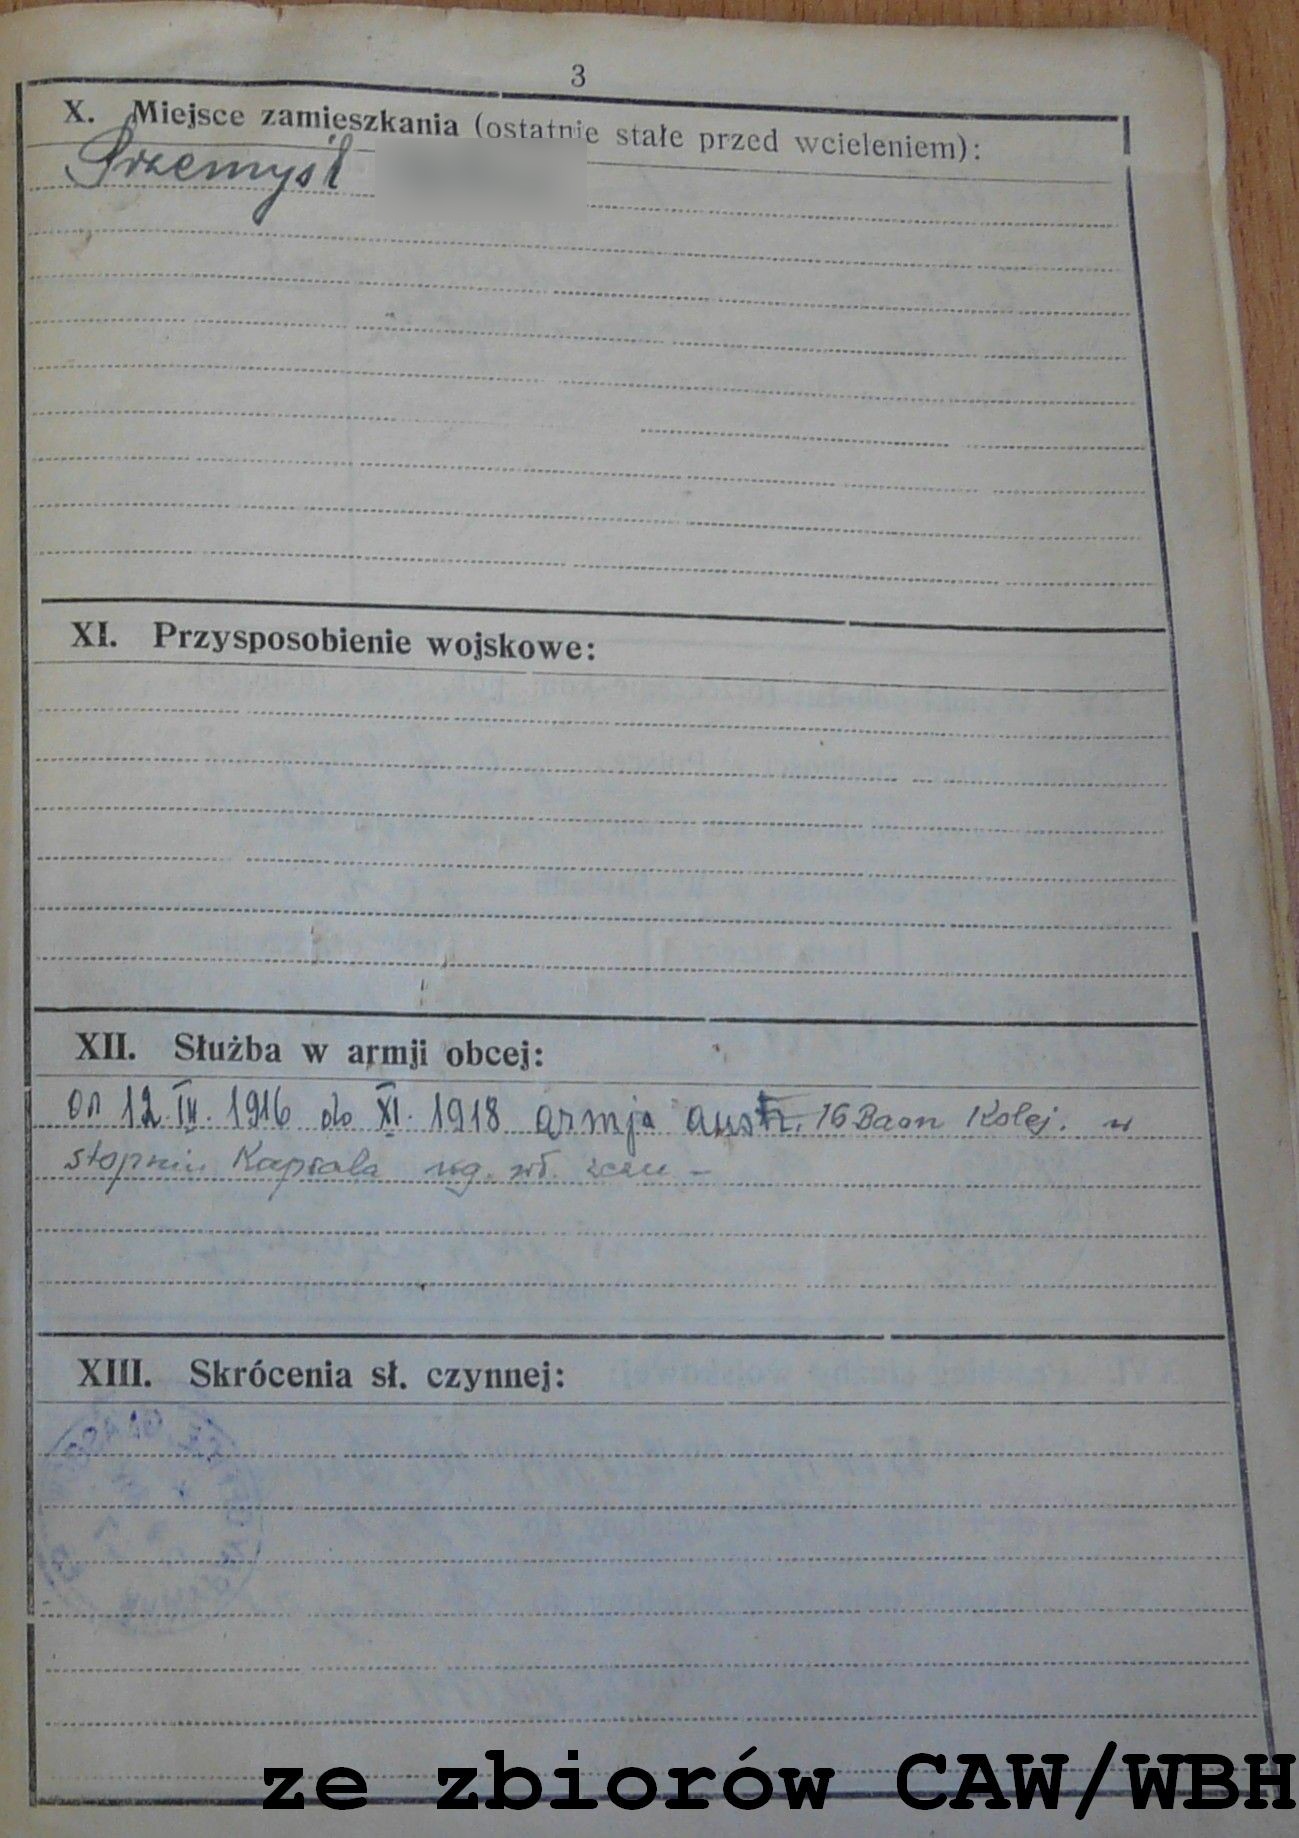 3
X. Miejsce zamieszkania (ostatnie stałe przed wcieleniem):
Przemyśl
XI. Przysposobienie wojskowe:
XII. Służba w armji obcej:
od 12.IV.1916 do XI.1918 armja austr. 16 Baon Kolej. w
stopniu Kaprala wg. wł. zezn –
XIII. Skrócenia sł. czynnej:
ze zbiorów CAW/WBH